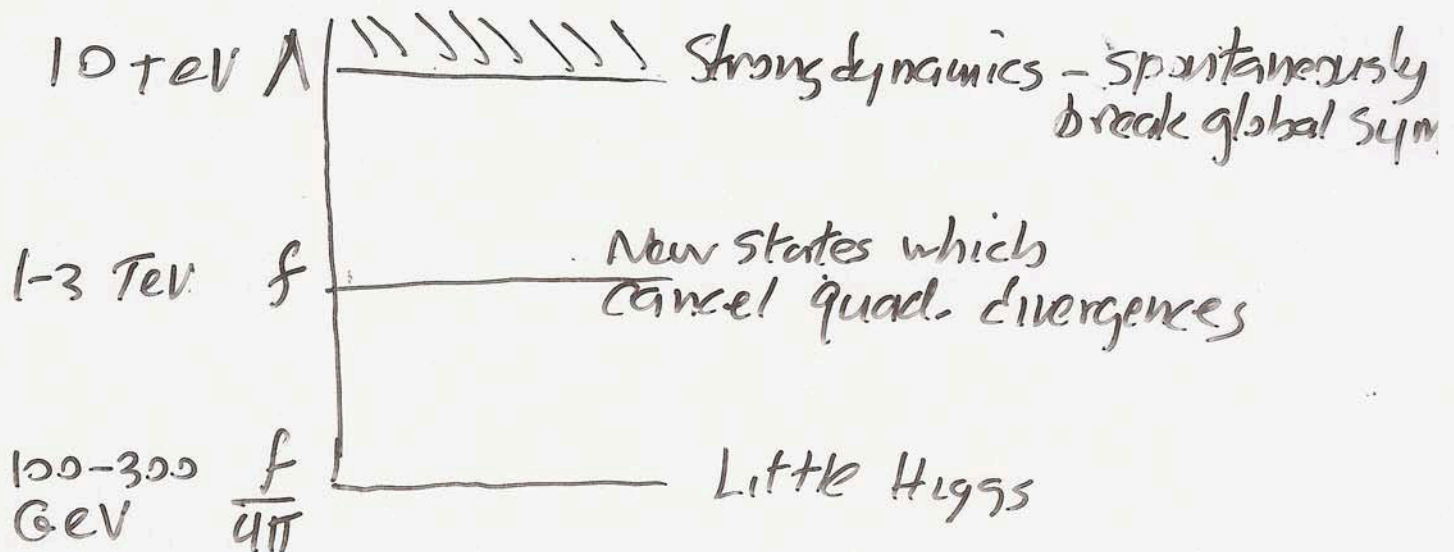 10 TeV Λ Strong dynamics - spontaneously
break global sym
1-3 TeV f New states which
cancel quad. divergences
100-300 f Little Higgs
GeV 4π